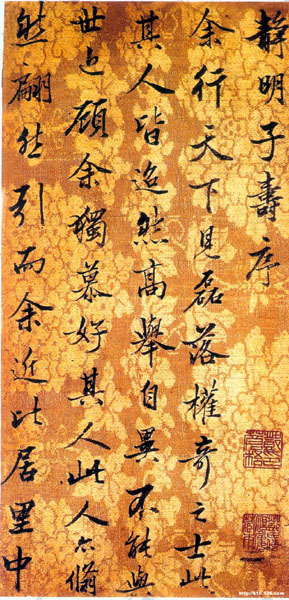 靜明子壽序
余行天下見磊落權奇之士此
其人皆然高舉自異不能與
世顧余獨慕好其人此人亦
然翩然引而余近比居里中